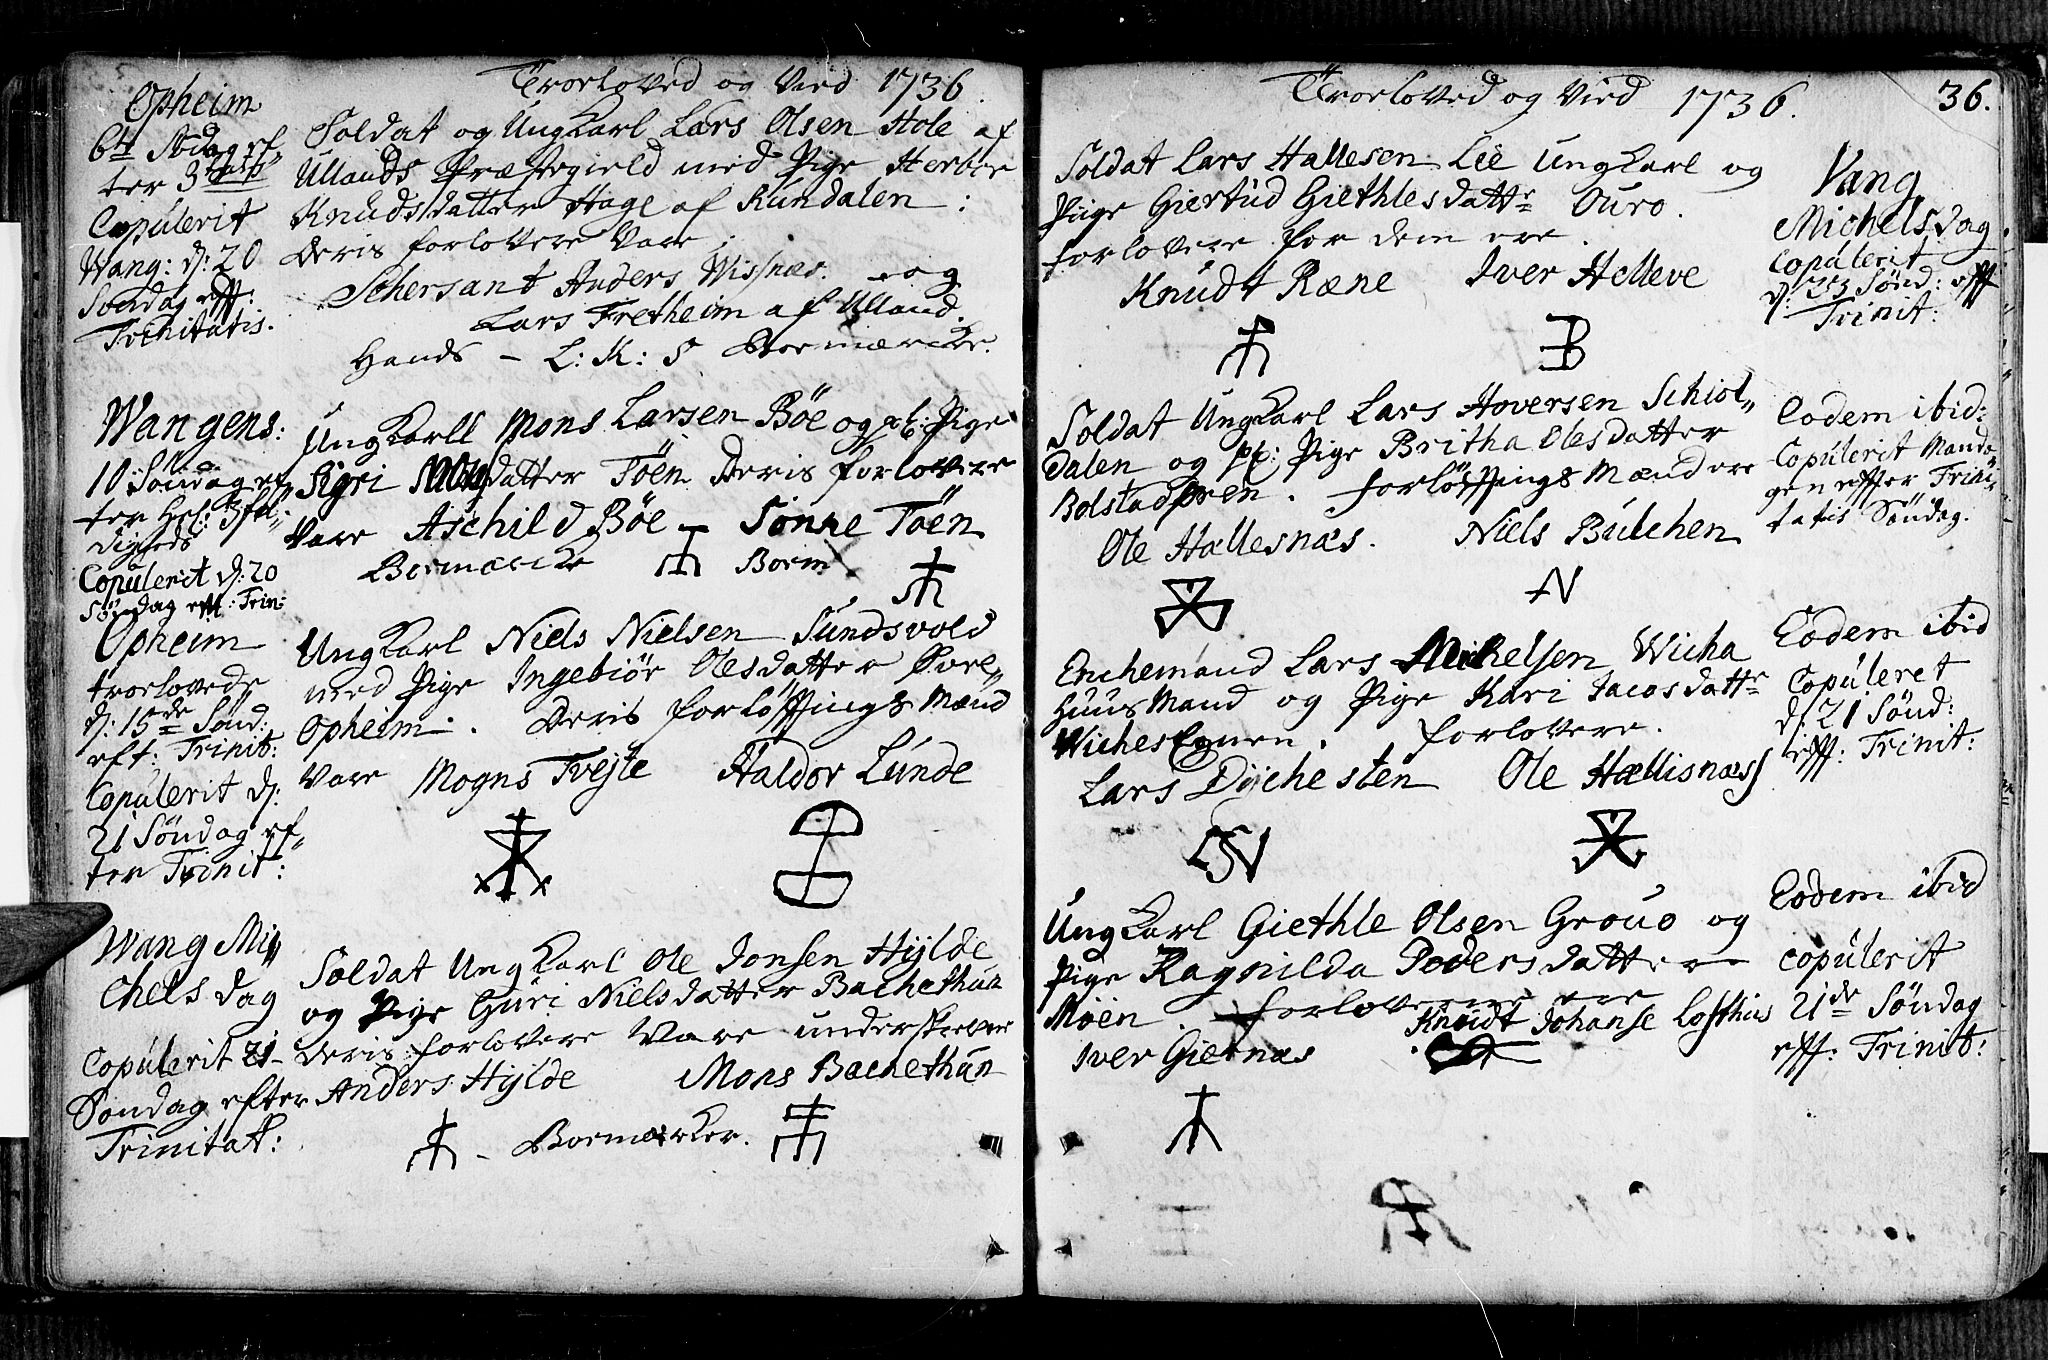 Troeloved og Vied 1736.
Opheim
Copulerit
Wang: d: 20
Sondag eff:
Trinitatis.
Soldat og UngKarl Lars Olsen Hole af
Ullands Præstegield med Pige Herbor
Knudsdatter Hage af Rundalen :
Deris forlovere vare,
Schersant Anders Wisnæs. og
Lars Fretheim af Ulland.
Hands – L: K: S Boemærcke.
Wangens:
10 Søndag ef
Copulerit d: 20
Søndag eff: Trin:
UngKarll Mons Larsen Bøe og Pige
Sigri datter Töen Deris forlovere
vare Aschild Bøe – Sonne Töen
Boemærcke Boem
Opheim
troelovede
d: 15de Sønd:
eft: Trinit:
Copulerit d:
21 Søndag ef-
ter Trinit:
UngKarl Niels Nielsen Sundsvold
med Pige Ingebiör Olesdatter
Opheim. Deris forløffningsMænd
vare Mogns Tvejte Haldor Lunde
Wang Mi,,
chels dag
Copulerit 21
Søndag efter
Trinitat:
Soldat UngKarl Ole Jonsen Hylde
og Pige Guri Nielsdatter Bachethun
Deris forlovere vare underskrevne
Anders Hylde Mons Bachethun
– Boemærker.
Troeloved og Vied 1736. 36.
Soldat Lars Hallesen Lie UngKarl og
Pige Giertud Giethlesdattr Ouro.
forlovere for dem ere.
Knudt Ræne Iver Helleve
Vang
Michelsdag
Copulerit
Sønd: eff
Trinit:
Soldat UngKarl Lars Hoversen Schiol,,
dalen og Pige Britha Olesdatter
Bolstadøren. forløffningsMænd ere
Ole Hællesnæs. Niels Bulchen
Eodem ibid:
Copulerit Manda,,
gen effter Trini,,
tatis Söndag.
Enchemand Lars Michelsen Wicha
HuusMand og Pige Kari Jacosdattr
Wiches Egnen. forlovere.
Lars Dychesten Ole Hællisnæs
Eodem ibid
Copuleret
d: 21 Sønd:
eff: Trinit:
UngKarl Giethle Olsen Grouo og
Pige Ragnilda Podersdatter
Möen. forloverne ere
Iver Giernæs Knudt Johanse Lofthus
Eodem ibid
copulerit
21de Søndag
eff: Trinit: